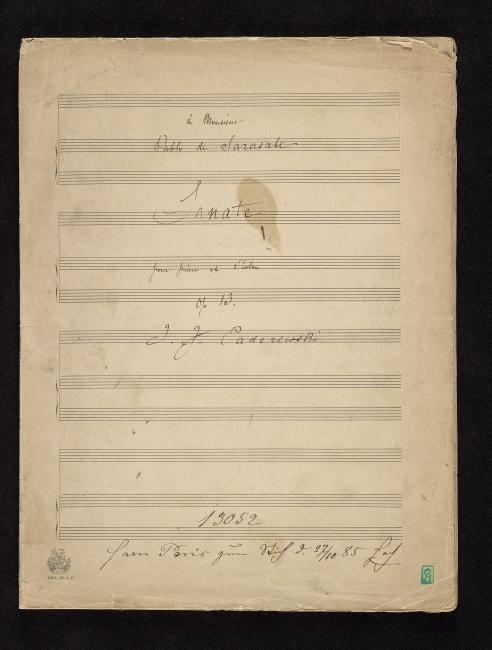 à Monsieur
Pablo de Sarasate
Sonate
pour piano et Violon
Op. 13.
I. J. Paderewski.
13052
Herrn Paris zum Stich d. 27/10 85